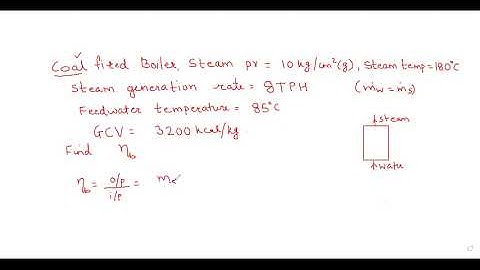 Coal fired Boiler, Steam pr = 10 kg/cm²(g), Steam temp = 180°C
Steam generation rate = 8 TPH (ṁw = ṁs)
Feedwater temperature = 85°C
GCV = 3200 kcal/kg
Find ηb
steam
water
ηb = o/p / i/p = ms